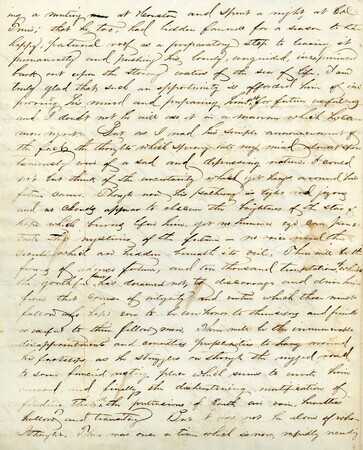 my a meeting at Houston and spent a night at
that he too had bidden farewell for a season to the
happy, paternal roof as a preparatory step to leaving it
permanently and pushing his lonely, unguided, inexperienced
bark out upon the stormy waters of the sea of life. I am
truly glad that such an opportunity is afforded him of im
proving his mind and preparing himself for future usefulness
and I doubt not he will use it in a manner which
But as I read his simple announcement of
the fact the thoughts which sprung into my mind
were of a sad and depressing nature. I could
not but think of the uncertainty which yet hangs around his
future career. Though now his pathway is light and joyous
and no clouds appear to obscure the brightness of the star of
hope while burning upon him, yet no human eye can pene
trate the mysteries of the future — no voice reveal the
secrets which are hidden beneath its veil. There will be the
frowns of adverse fortune, and ten thousand temptations, which
the youthful has dreamed not, to discourage and allure him
from that course of integrity and virtue which those must
follow who hope ever to be an honor to themselves and friends
or useful to their fellow men. There will be the innumerable
disappointments and anxieties preparing to hang around
his footsteps as he struggles on through the rugged road
to some fancied resting place which seems to invite him
onward and finally the disheartening mortification of
finding that all the pretensions of Earth are vain, heartless
hollow and transitory But I was not
thoughts. There was once a time which is now, rapidly